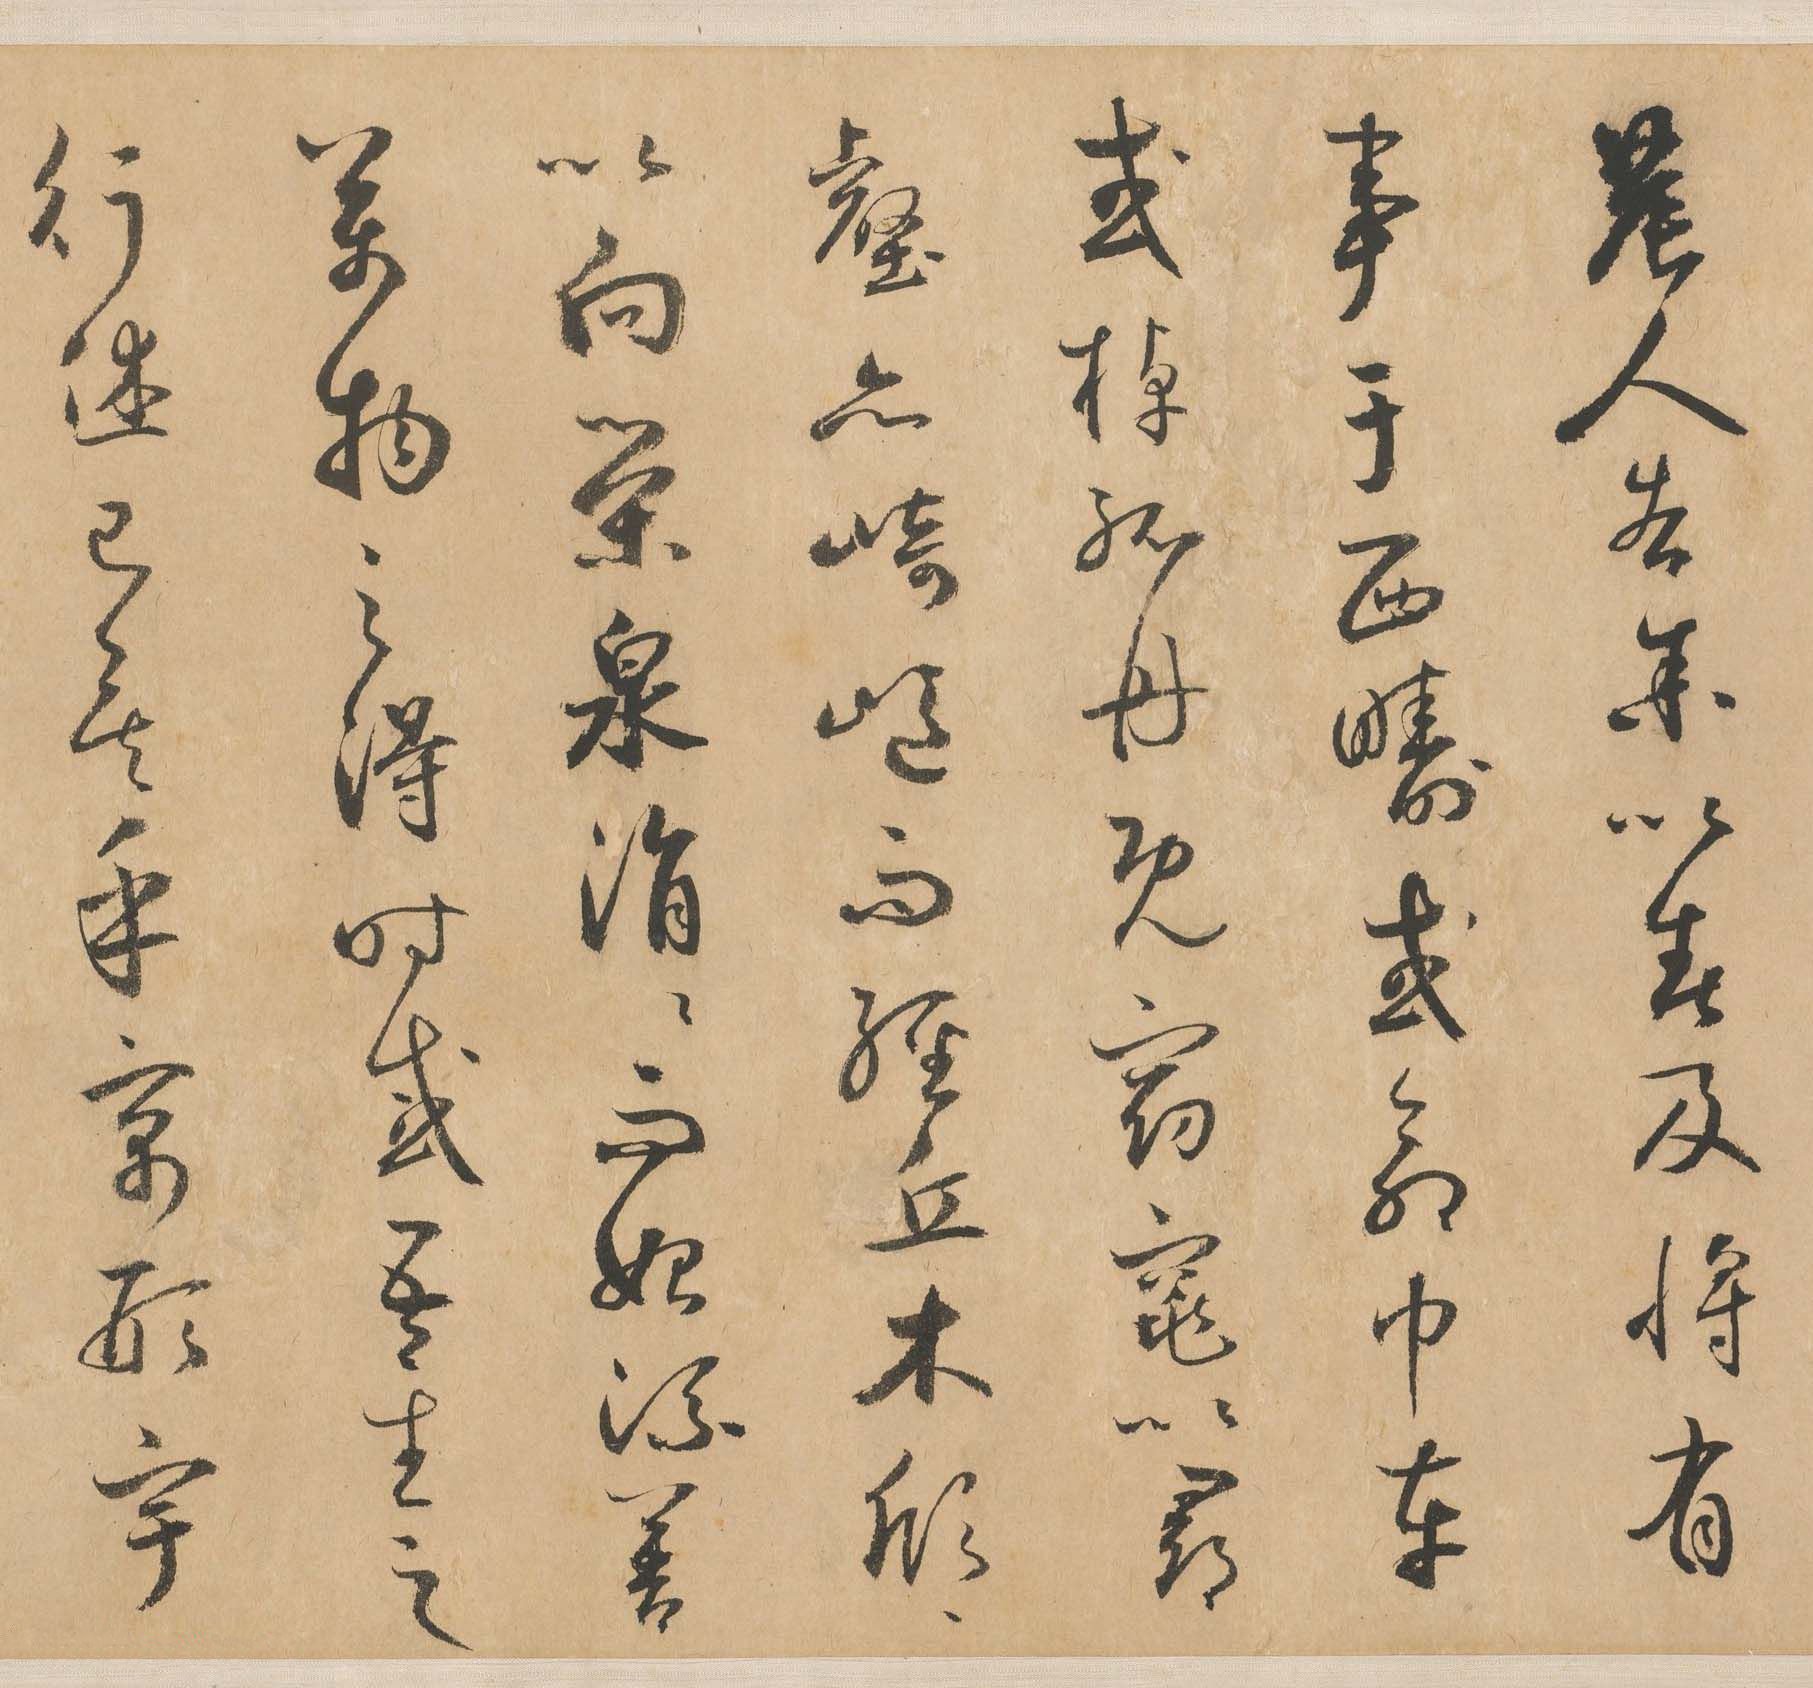 農人告余以春及將有
事于西疇或命巾車
或棹孤舟既窈窕以尋
壑亦崎嶇而經丘木欣〻
以向榮泉涓〻而始流善
萬物之得時感吾生之
行休已矣乎寓形宇